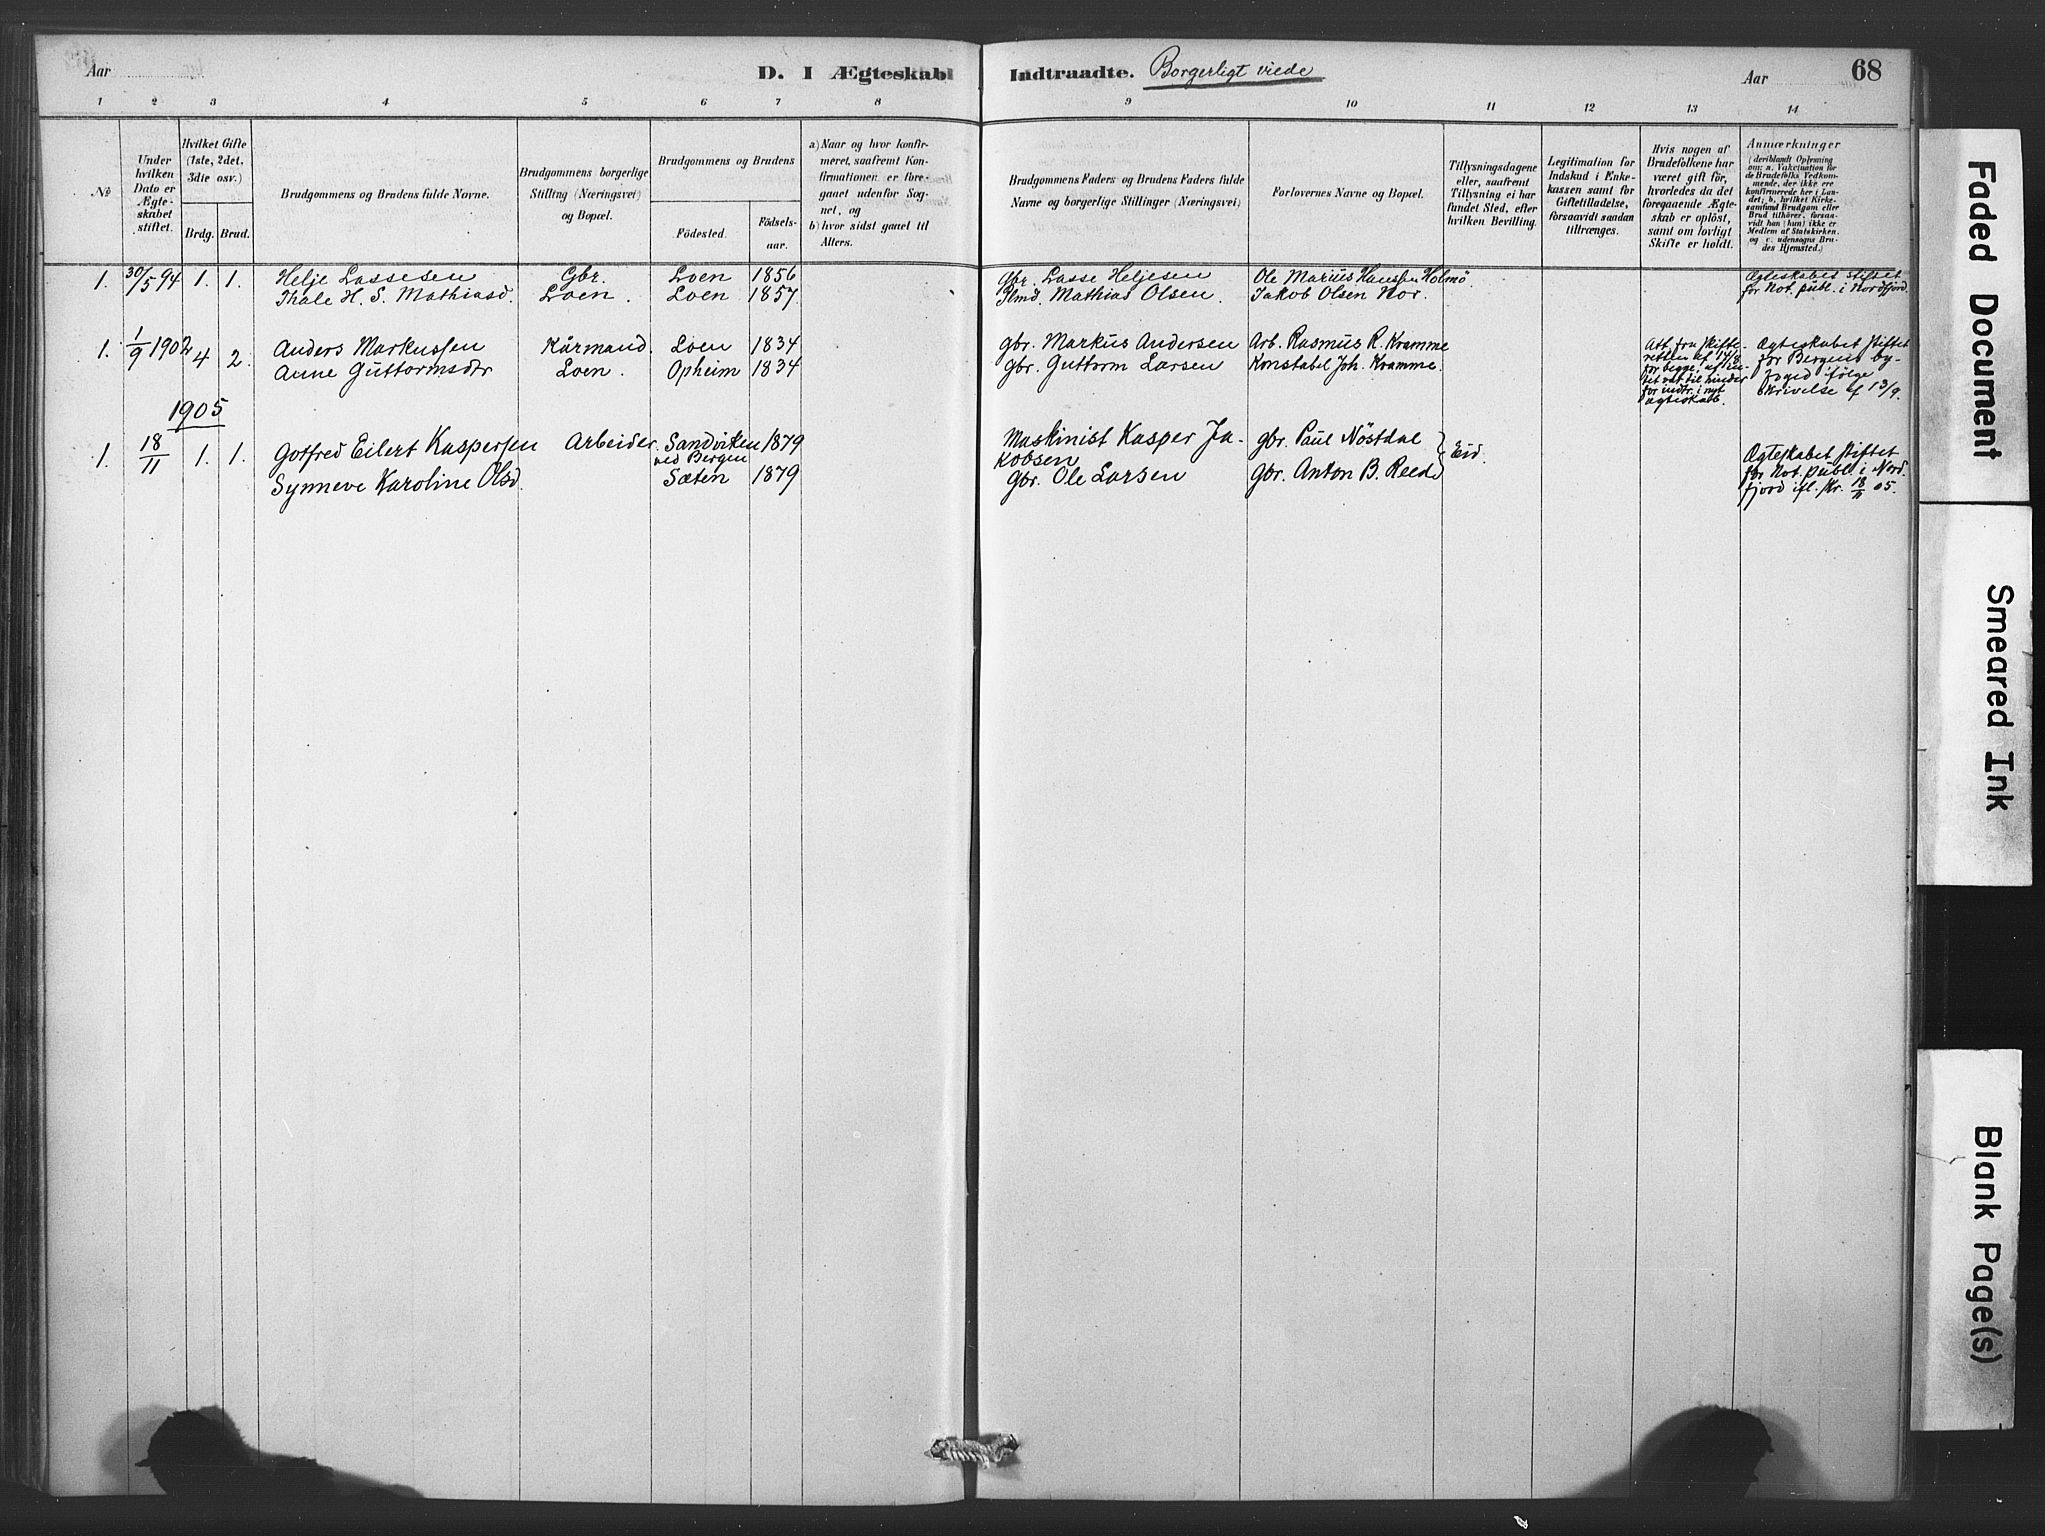 Aar
D. I Ægteskab
Indtraadte. Borgerligt viede
Aar
68
1 2 3 4 5 6 7 8 9 10 11 12 13 14
No
Under hvilken Dato er Ægteskabet stiftet.
Hvilket Gifte (1ste, 2det, 3die osv.)
Brdg. Brud.
Brudgommens og Brudens fulde Navne.
Brudgommens borgerlige Stilling (Næringsvei) og Bopæl.
Brudgommens og Brudens
Födested.
Födsels-aar.
a) Naar og hvor konfir-
meret, saafremt Kon-
firmationen er fore-
gaaet udenfor Sog-
net, og
b) hvor sidst gaaet til
Alters.
Brudgommens Faders og Brudens Faders fulde
Navne og borgerlige Stillinger (Næringsvei)
Forlovernes Navne og Bopæl.
Tillysningsdagene
eller, saafremt
Tillysning ei har
fundet Sted, efter
hvilken Bevilling.
Legitimation for
Indskud i Enke-
kassen samt for
Giftetilladelse,
forsaavidt saadan
tiltrænges.
Hvis nogen af
Brudefolkene har
været gift för,
hvorledes da det
foregaaende Ægte-
skab er oplöst,
samt om lovligt
Skifte er holdt.
Anmærkninger
(deriblandt Oplysning
om: a. Vakcination för
de Brudefolks Vedkom-
mende, der ikke ere
konfirmerede her i Lan-
det; b. hvilket Kirke-
samfund Brudgom eller
Brud tilhörer, forsaa-
vidt han (hun) ikke er
Medlem af Statskirken,
og c. udensogns Bru-
des Hjemsted.)
1. 30/5 94 1. 1. Helje Lassesen Gbr. Loen 1856 Gbr. Lasse Heljesen Ole Marius Hanssen Holmö Ægteskabet stiftet
Thale H. S. Mathiasd. Loen. Loen 1857 Plmd. Mathias Olsen. Jakob Olsen Nor. for Not. publ. i Nordfjord.
1. 1/9 1902 4 2. Anders Markussen Kårmand. Loen 1834 gbr. Markus Andersen Arb. Rasmus R. Kramme Att. fra skifte- Ægteskabet stiftet
Anne Guttormsdr Loen. Opheim 1834 gbr. Guttorm Larsen Konstabel Joh. Kramme. retten af 14/8 for Bergens by-
for begge, af in- fogid ifölge
tet var til hinder skrivelse af 13/9.
for indtr. i nyt
ægteskab.
1905
1. 18/11 1. 1. Gotfred Eilert Kaspersen Arbeider. Sandviken 1879 Maskinist Kasper Ja- gbr. Paul Nöstdal Eid. Ægteskabet stiftet
ved Bergen kobsen for Not. publ. i Nord-
Synneve Karoline Olsd. Sæten 1879 gbr. Ole Larsen gbr. Anton B. Reed fjord ifl. skr. 18/11 05.
Faded Document
Smeared Ink
Blank Page(s)